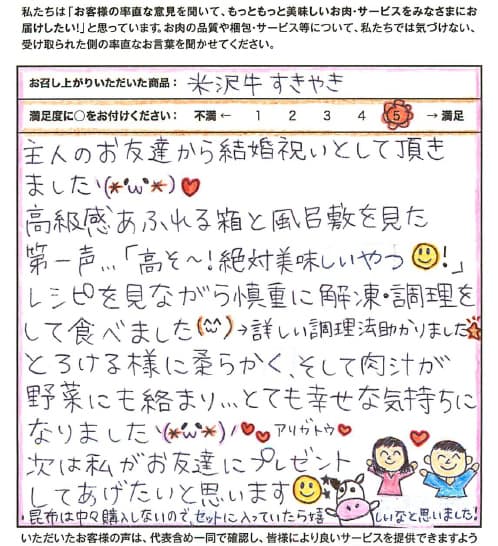 私たちは「お客様の率直な意見を聞いて、もっともっと美味しいお肉・サービスをみなさまにお
届けしたい!」と思っています。お肉の品質や梱包・サービス等について、私たちでは気づけない、
受け取られた側の率直なお言葉を聞かせてください。
お召し上がりいただいた商品: 米沢牛すきやき
満足度に○をお付けください: 不満 ← 1 2 3 4 5 → 満足
主人のお友達から結婚祝いとして頂き
ました\(*'ω'*)
高級感あふれる箱と風呂敷を見た
第一声…「高そ~!絶対美味しいやつ!」
レシピを見ながら慎重に解凍・調理を
して食べました(^^)→詳しい調理法助かりました
とろける様に柔らかく、そして肉汁が
野菜にも絡まり…とても幸せな気持ちに
なりました\(*'ω'*)/ アリガトウ
次は私がお友達にプレゼント
してあげたいと思います
・昆布は中々購入しないので、セットに入っていたら嬉しいなと思いました!
いただいたお客様の声は、代表含め一同で確認し、皆様により良いサービスを提供できますよう